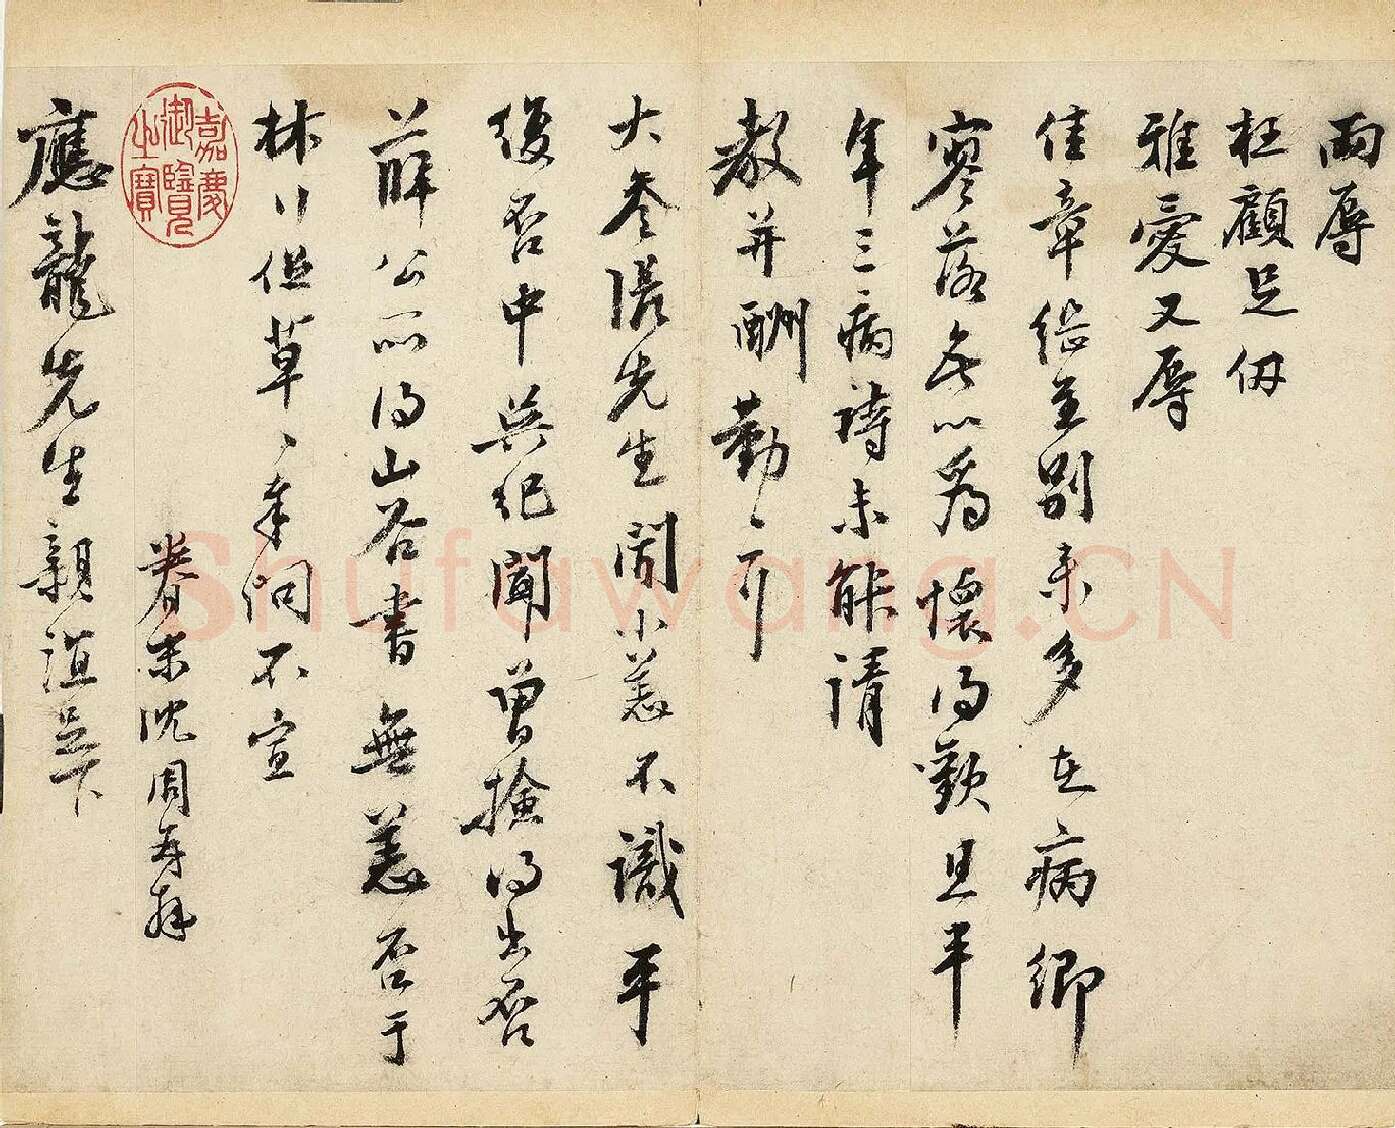 兩辱
枉顧足仞
雅愛又辱
佳章繼至別来多在病鄉
寥落無以為懷得歡且半
年三病詩未能請
教并酬勤勤耳
大參張先生聞小恙不識平
復否中吳紀聞曾撿得出否
薛公所得山谷書無恙否于
林行促草草奉問不宣
眷末沈周再拜
應龍先生親誼足下
嘉慶御覽之寶
shufawang.CN